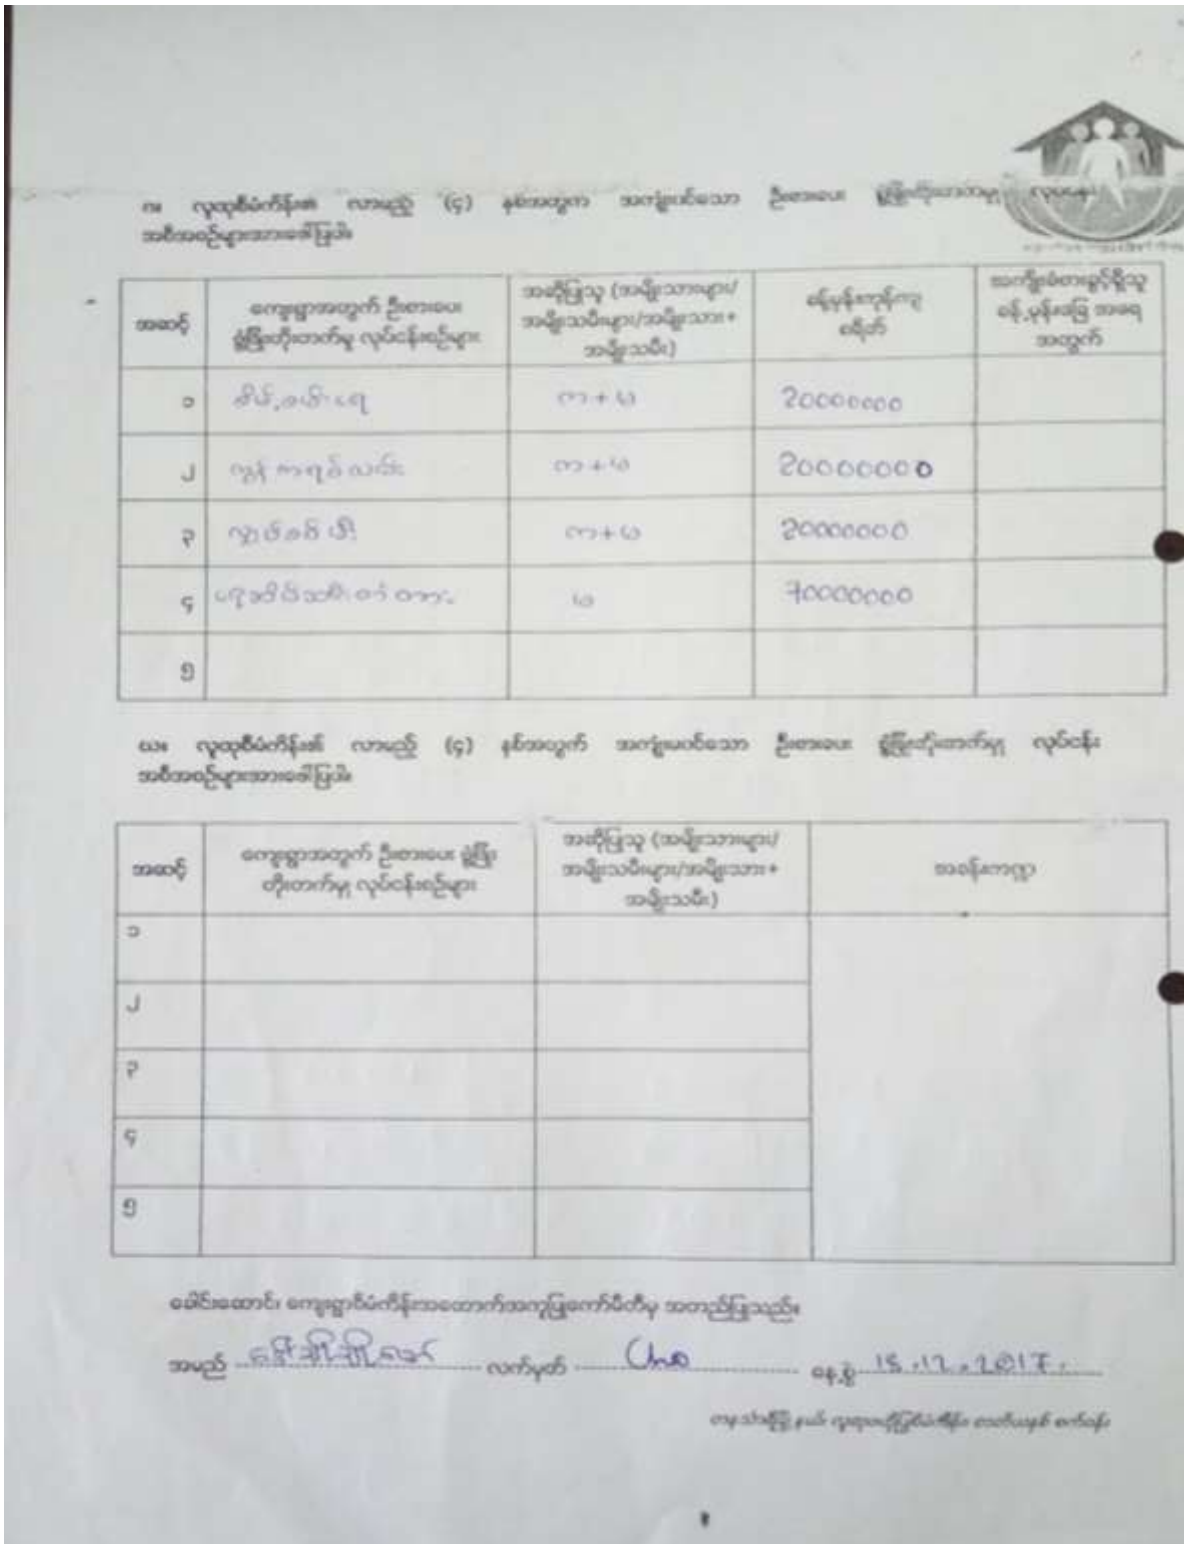 ဂ။ လူထုစီမံကိန်း၏ လာမည့် (၄) နှစ်အတွက် အကျုံးဝင်သော ဦးစားပေး ဖွံ့ဖြိုးတိုးတက်မှု လုပ်ငန်း
အစီအစဉ်များအားဖော်ပြပါ။
အဆင့် ကျေးရွာအတွက် ဦးစားပေး ဖွံ့ဖြိုးတိုးတက်မှု လုပ်ငန်းစဉ်များ အဆိုပြုသူ (အမျိုးသားများ/ အမျိုးသမီးများ/အမျိုးသား+ အမျိုးသမီး) ခန့်မှန်းကုန်ကျ စရိတ် အကျိုးခံစားခွင့်ရှိသူ ခန့်မှန်းခြေ အရေ အတွက်
၁ စိမ့်စမ်းရေ က + မ 20000000
၂ ကွန်ကရစ်လမ်း က + မ 20000000
၃ လျှပ်စစ်မီး က + မ 20000000
၄ မ 70000000
၅
ဃ။ လူထုစီမံကိန်း၏ လာမည့် (၄) နှစ်အတွက် အကျုံးမဝင်သော ဦးစားပေး ဖွံ့ဖြိုးတိုးတက်မှု လုပ်ငန်း
အစီအစဉ်များအားဖော်ပြပါ။
အဆင့် ကျေးရွာအတွက် ဦးစားပေး ဖွံ့ဖြိုး တိုးတက်မှု လုပ်ငန်းစဉ်များ အဆိုပြုသူ (အမျိုးသားများ/ အမျိုးသမီးများ/အမျိုးသား+ အမျိုးသမီး) အခန်းကဏ္ဍ
၁
၂
၃
၄
၅
ခေါင်းဆောင်၊ ကျေးရွာစီမံကိန်းအထောက်အကူပြုကော်မီတီမှ အတည်ပြုသည်။
အမည် လက်မှတ် Cho နေ့စွဲ 15.12.2017.